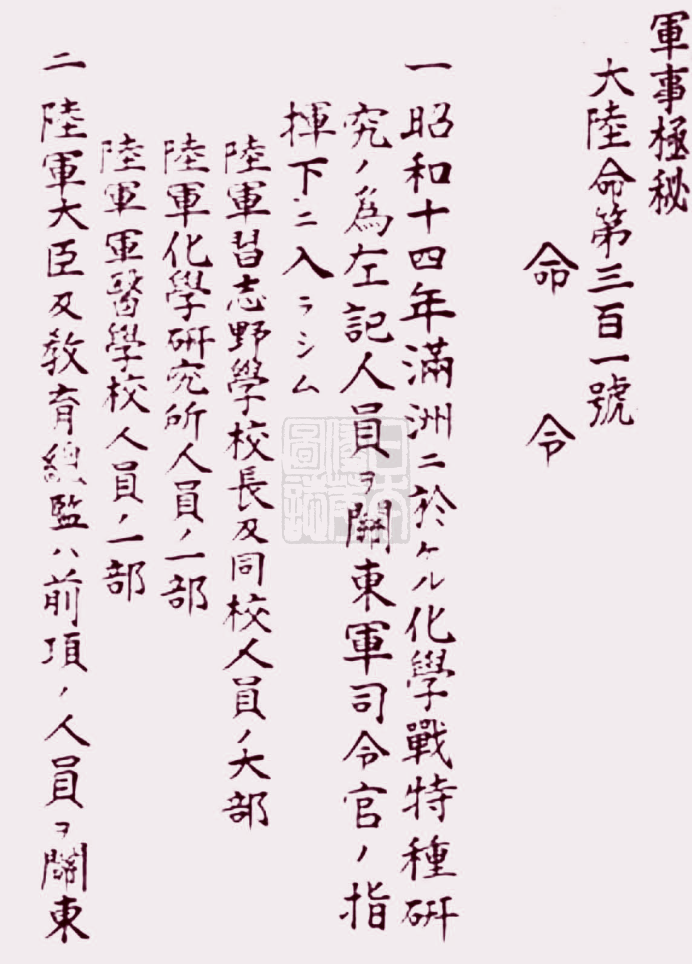 軍事極秘
大陸命第三百一號
命令
一 昭和十四年滿洲ニ於ケル化學戰特種研
究ノ爲左記人員ヲ關東軍司令官ノ指
揮下ニ入ラシム
陸軍習志野學校長及同校人員ノ大部
陸軍化學研究所人員ノ一部
陸軍軍醫學校人員ノ一部
二 陸軍大臣及教育總監ハ前項ノ人員ヲ關東